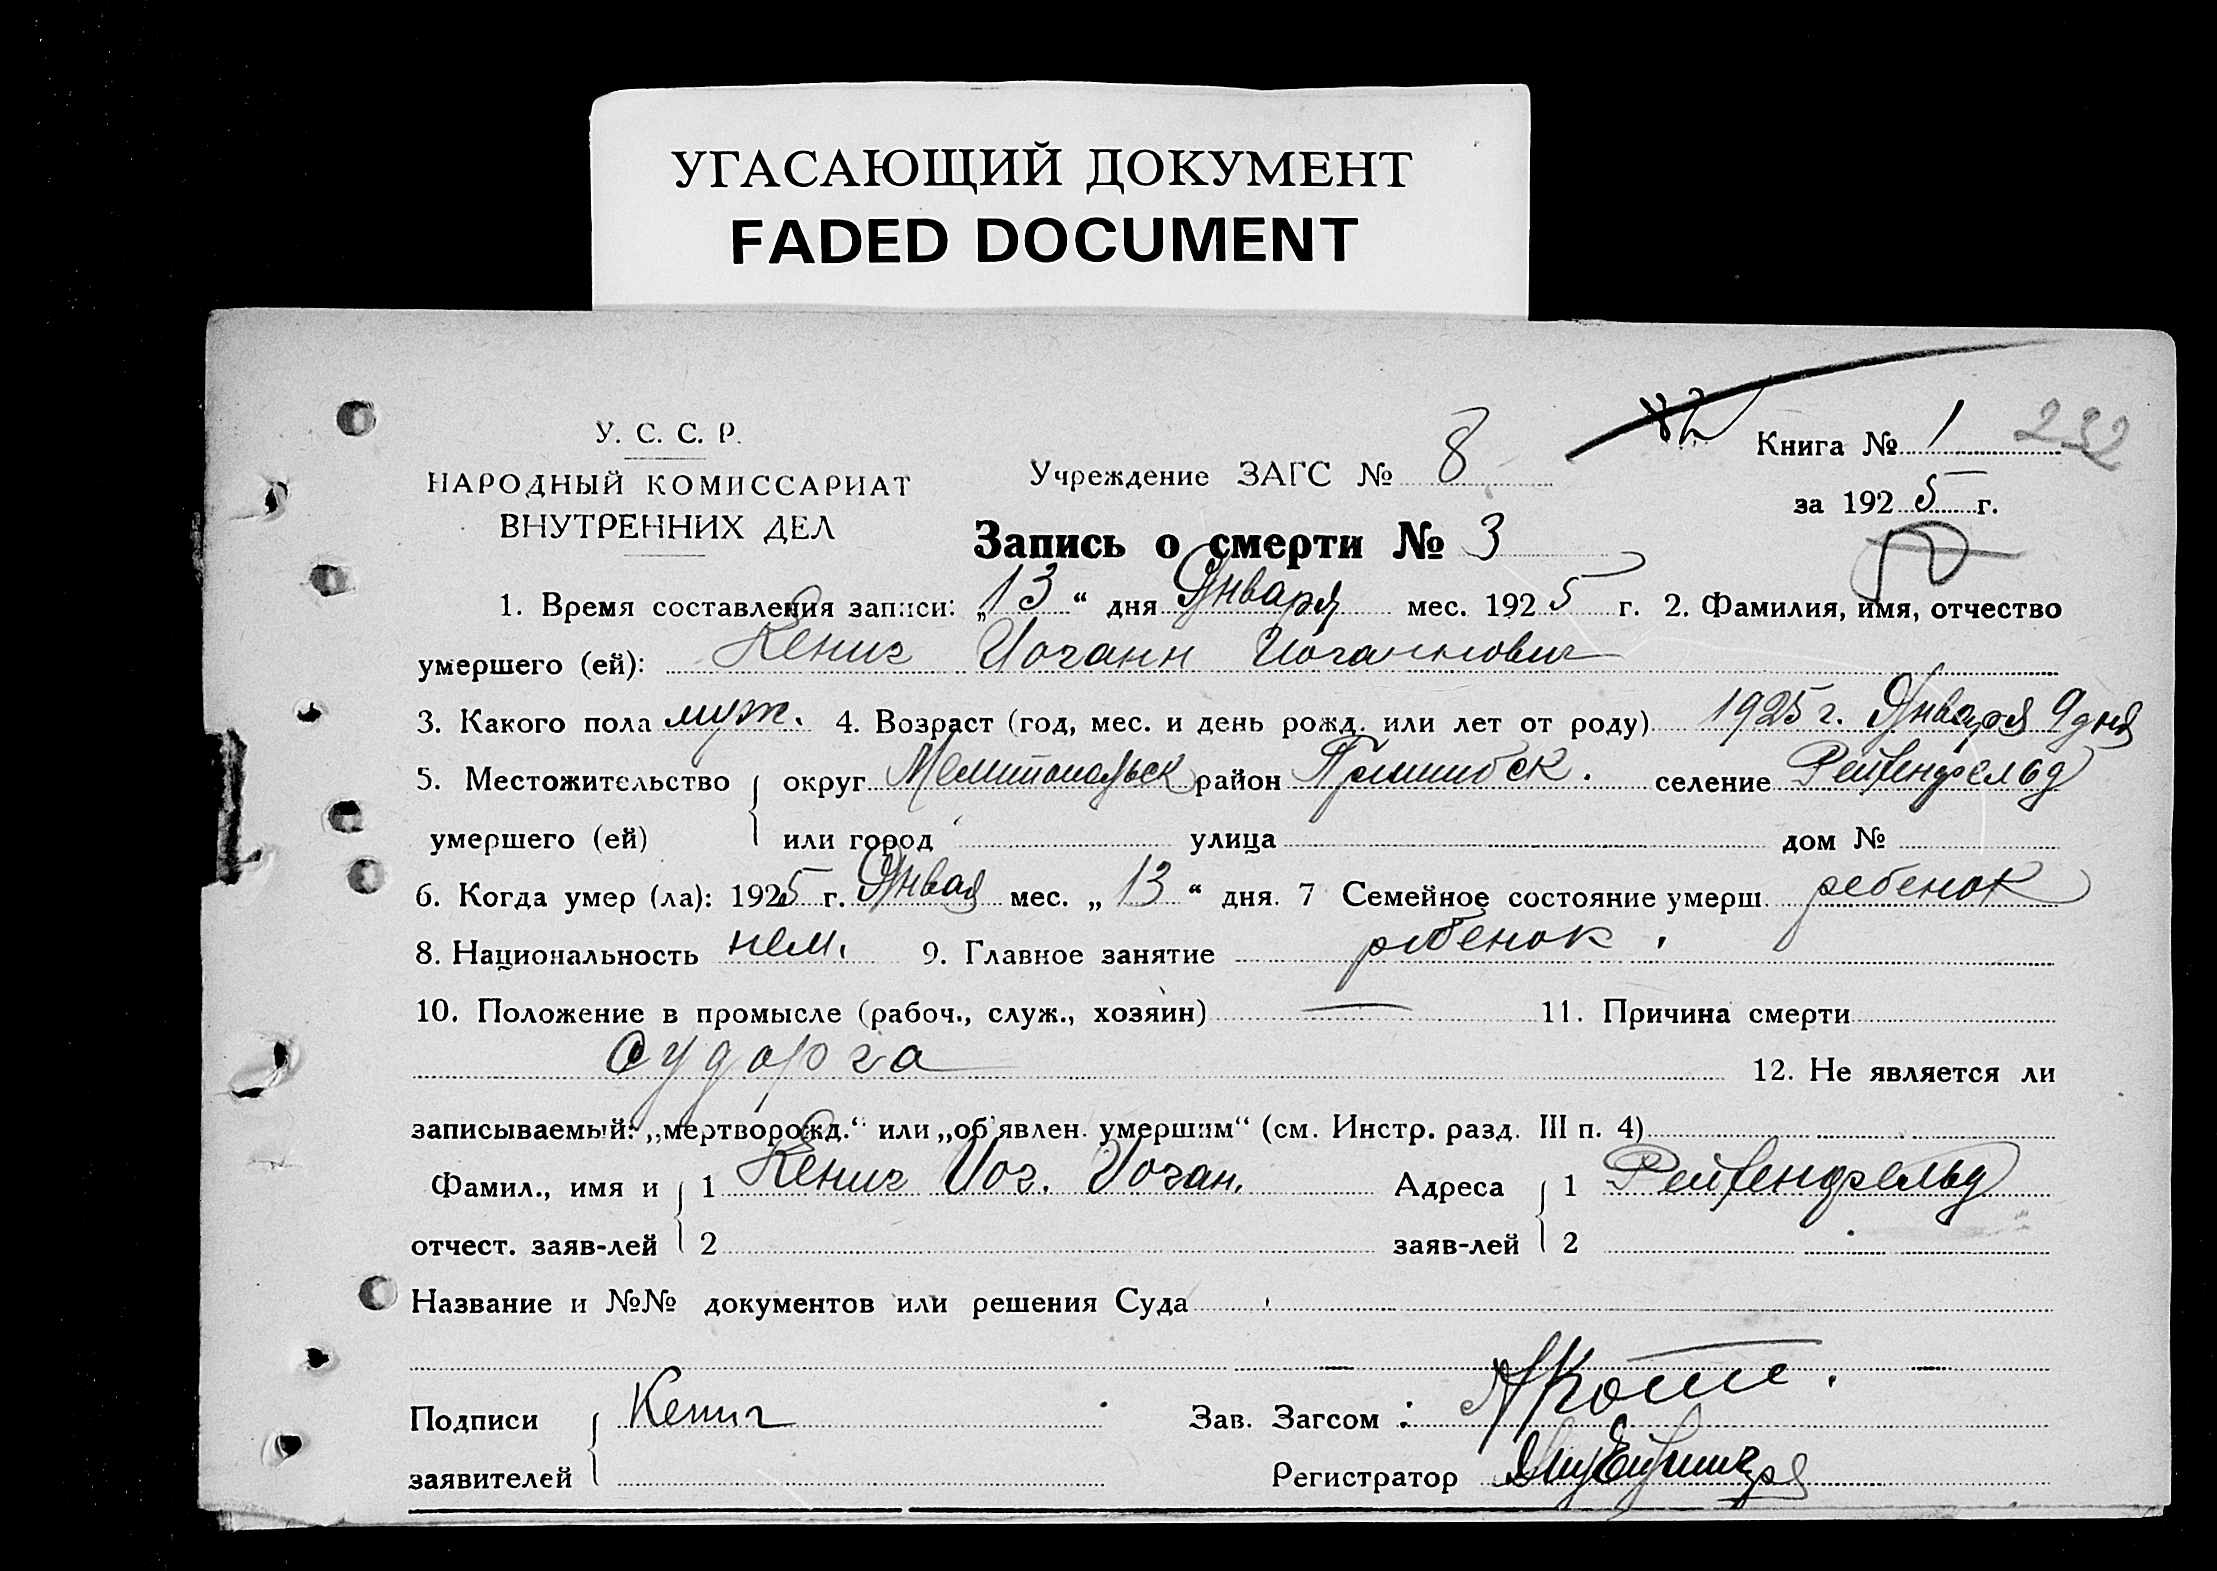 УГАСАЮЩИЙ ДОКУМЕНТ
FADED DOCUMENT
У. С. С. Р.
НАРОДНЫЙ КОМИССАРИАТ
ВНУТРЕННИХ ДЕЛ
Учреждение ЗАГС № 8
82
Книга № 1 232
за 1925 г.
Запись о смерти № 3
50
1. Время составления записи: „13“ дня Января мес. 1925 г. 2. Фамилия, имя, отчество
умершего (ей): Кениг Иоганн Иоганнович
3. Какого пола муж. 4. Возраст (год, мес. и день рожд. или лет от роду) 1925 г. Января 9 дня
5. Местожительство округ Мелитопольск район Пришибск. селение Рейхенфельд
умершего (ей) или город улица дом №
6. Когда умер (ла): 1925 г. Январ мес. „13“ дня. 7 Семейное состояние умерш. ребенок
8. Национальность нем. 9. Главное занятие ребенок.
10. Положение в промысле (рабоч., служ., хозяин) — 11. Причина смерти
Судорга 12. Не является ли
записываемый: „мертворожд.“ или „об'явлен. умершим“ (см. Инстр. разд. III п. 4)
Фамил., имя и 1 Кениг Иог. Иоган. Адреса 1 Рейхенфельд
отчест. заяв-лей 2 заяв-лей 2
Название и №№ документов или решения Суда
Подписи Кениг Зав. Загсом:
заявителей Регистратор